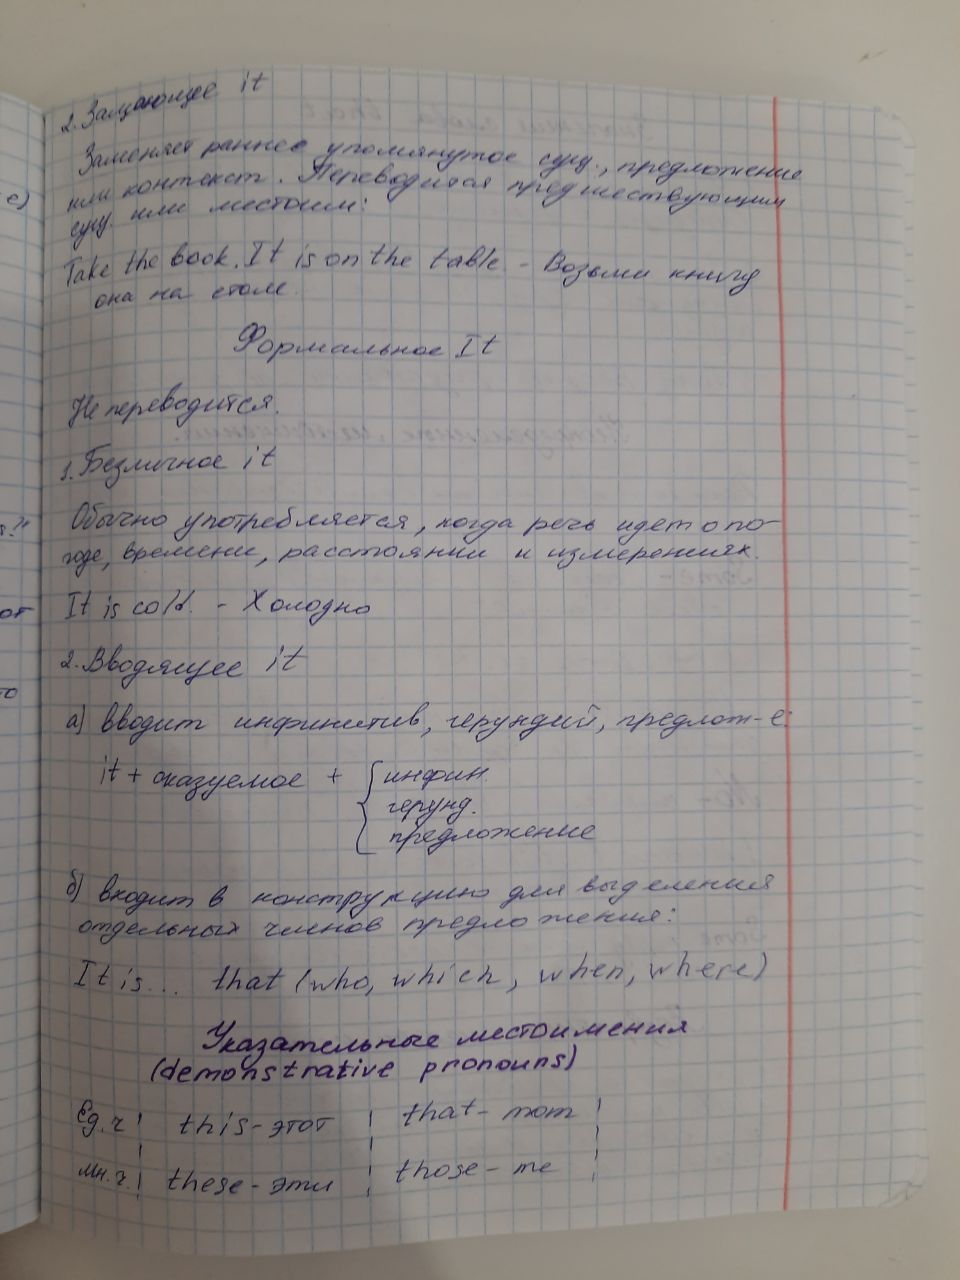 2. Замещающее it
Заменяет раннее упомянутое сущ., предложение
или контекст. Переводится предшествующим
сущ. или местоим:
Take the book. It is on the table - Возьми книгу
она на столе.
Формальное It
Не переводится.
1. Безличное it
Обычно употребляется, когда речь идет о по-
годе, времени, расстоянии и измерениях.
It is cold. - Холодно
2. Вводящее it
а) вводит инфинитив, герундий, предлож-е:
it + сказуемое + { инфин.
герунд.
предложение
б) входит в конструкцию для выделения
отдельных членов предложения:
It is... that (who, which, when, where)
Указательные местоимения
(demonstrative pronouns)
Ед. ч | this - этот | that - тот |
Мн. ч. | these - эти | those - те |